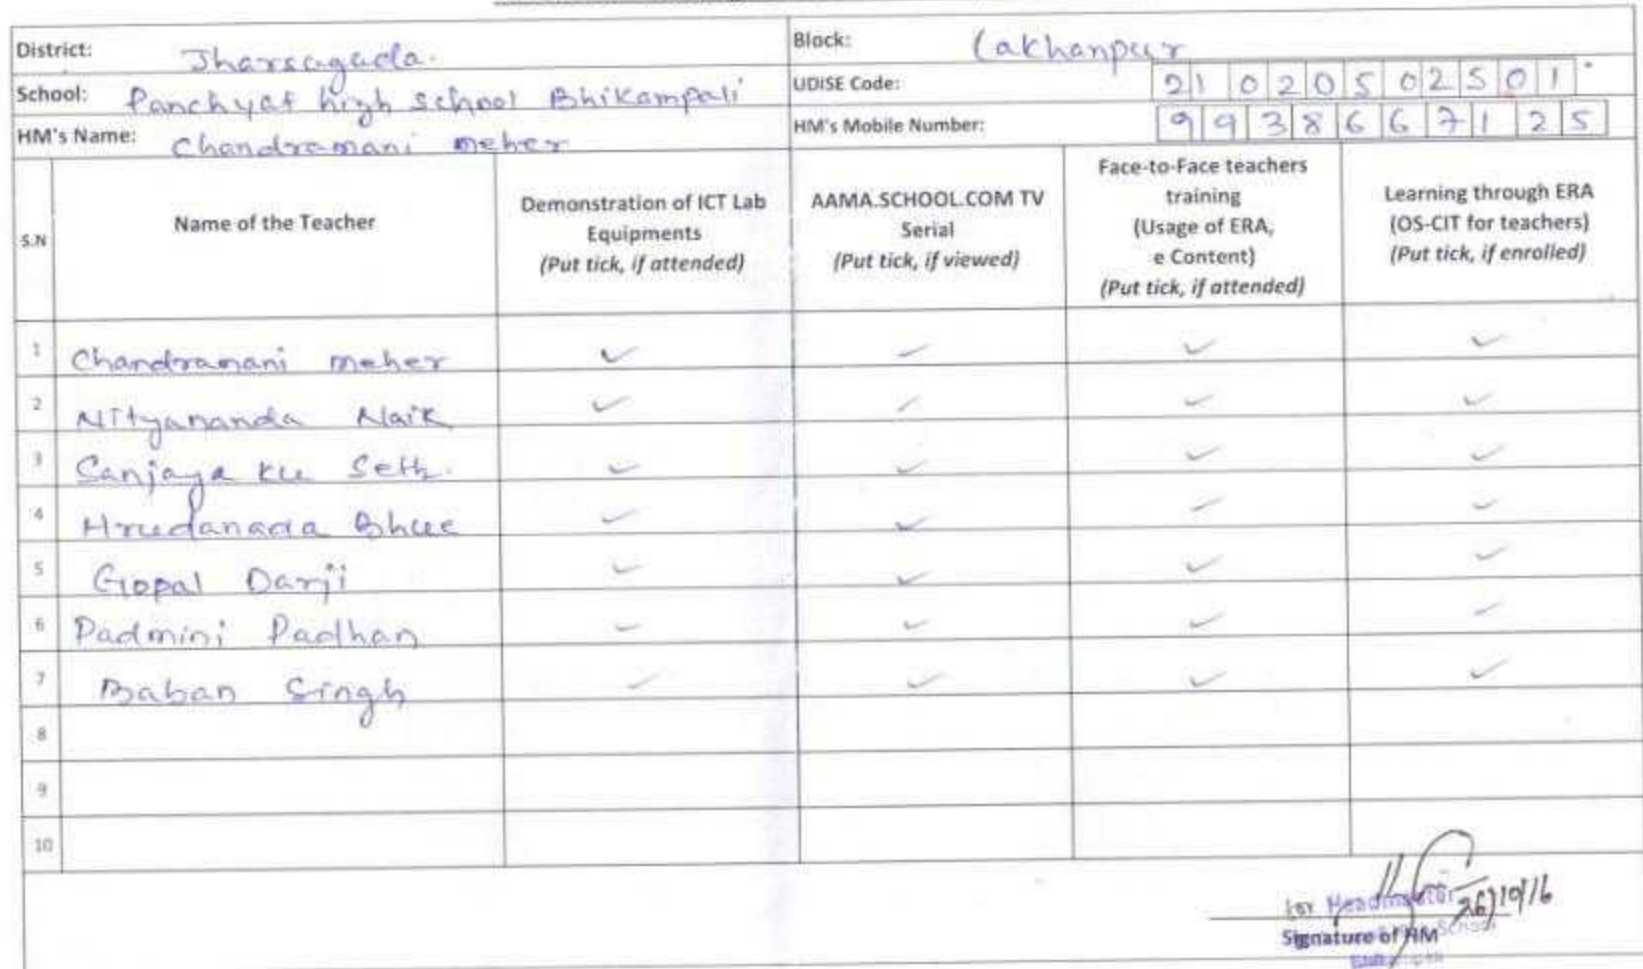 District: Jharsagada. Block: Lakhanpur
School: Panchyat high school Bhikampali UDISE Code: 21020502501
HM's Name: Chandramani meher HM's Mobile Number: 9938667125
S.N Name of the Teacher Demonstration of ICT Lab Equipments (Put tick, if attended) AAMA.SCHOOL.COM TV Serial (Put tick, if viewed) Face-to-Face teachers training (Usage of ERA, e Content) (Put tick, if attended) Learning through ERA (OS-CIT for teachers) (Put tick, if enrolled)
1 Chandramani meher ✓ ✓ ✓ ✓
2 Nityananda Naik ✓ ✓ ✓ ✓
3 Sanjaya ku Seth. ✓ ✓ ✓ ✓
4 Hrudanada Bhue ✓ ✓ ✓ ✓
5 Gopal Darji ✓ ✓ ✓ ✓
6 Padmini Padhan ✓ ✓ ✓ ✓
7 Baban Singh ✓ ✓ ✓ ✓
8
9
10
Headmaster 26/10/16
Signature of HM School